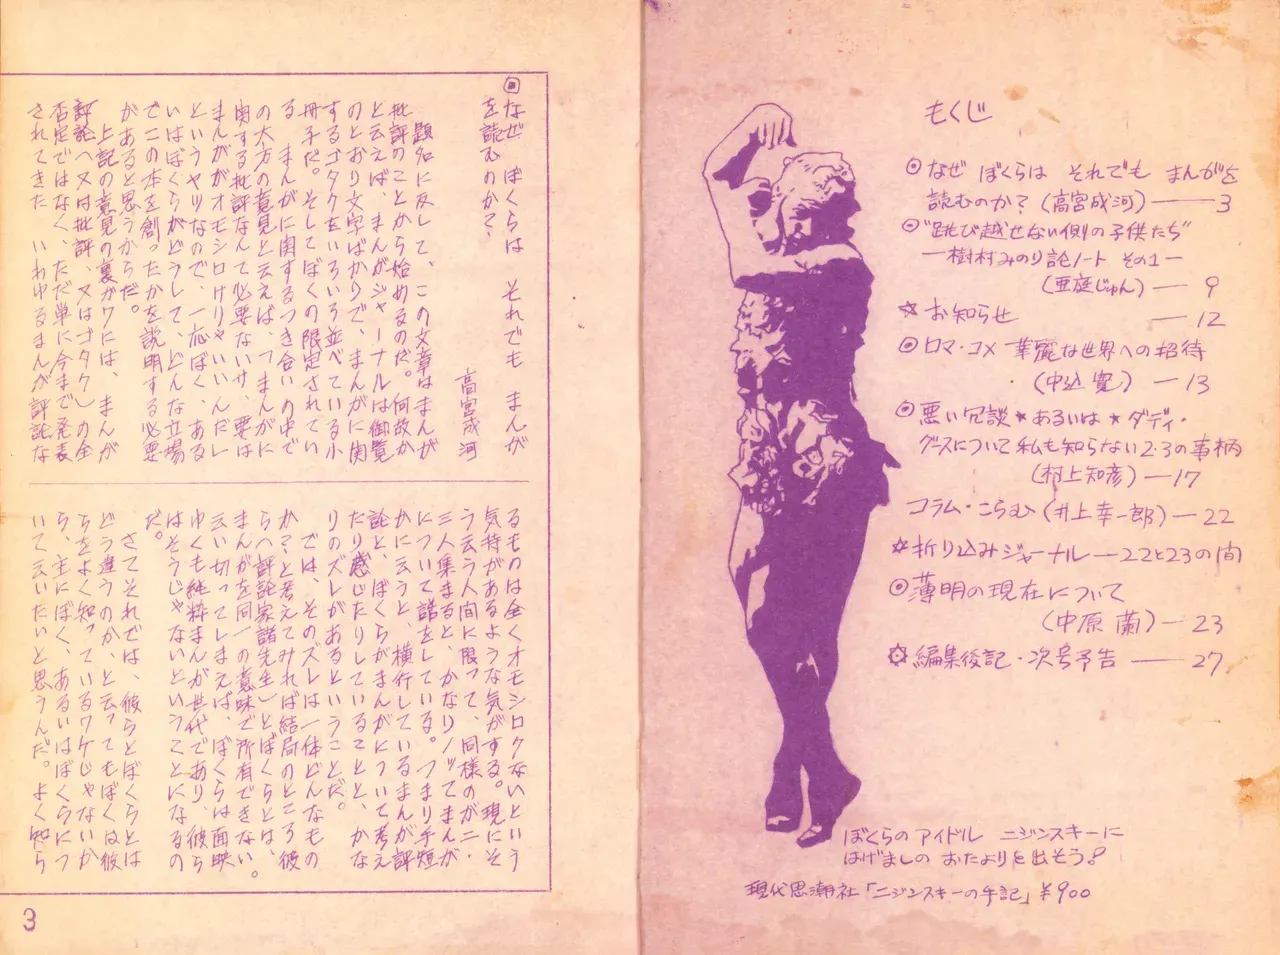 もくじ
◉なぜ ぼくらは それでも まんがを
読むのか?(高宮成河)―― 3
◉"跳び越せない側の子供たち"
―樹村みのり論ノート その1―
(亜庭じゅん)― 9
☆お知らせ ― 12
◉ロマ・コメ 華麗な世界への招待
(中込 寛)― 13
◉悪い冗談★あるいは★ダディ・
グースについて私も知らない2・3の事柄
(村上知彦)― 17
コラム・こらむ(井上幸一郎)― 22
☆折り込みジャーナル ― 22と23の間
◉薄明の現在について
(中原 蘭)― 23
✡編集後記・次号予告 ―― 27
ぼくらのアイドル ニジンスキーに
はげましの おたよりを出そう!
現代思潮社「ニジンスキーの手記」¥900
◉なぜ ぼくらは それでも まんが
を読むのか?
高宮成河
題名に反して、この文章はまんが
批評のことから始めるのだ。何故か
と云えば、まんがジャーナルは御覧
のとおり文字ばかりで、まんがに関
するゴタクをいろいろ並べている小
冊子だ。そしてぼくの限定されてい
る まんがに関するつき合いの中で
の大方の意見と云えば、「まんがに
関する批評なんて必要ないサ、要は
まんががオモシロけりゃいいんだレ
というヤツなので、一応ぼく、ある
いはぼくらがどうして、どんな立場
でこの本を創ったかを説明する必要
があると思うからだ。
上記の意見の裏がワには、まんが
評論(又は批評、又はゴタク)の全
否定ではなく、ただ単に今まで発表
されてきた いわゆるまんが評論な
るものは全くオモシロクないという
気持があるような気がする。現にそ
う云う人間に限って、同様のが二・
三人集まると、かなりノッてまんが
について話をしている。つまり手短
かに云うと、横行しているまんが評
論と、ぼくらがまんがについて考え
たり感じたりしていることと、かな
りのズレがあるということだ。
では、そのズレは一体どんなもの
か?と考えてみれば結局のところ彼
ら(評論家諸先生)とぼくらとは、
まんがを同一の意味で所有できない。
云い切ってしまえば、ぼくらは面映
ゆくも純粋まんが世代であり、彼ら
はそうじゃないということになるの
だ。
さてそれでは、彼らとぼくらとは
どう違うのか、と云ってもぼくは彼
らをよく知っているワケじゃないか
ら、主にぼく、あるいはぼくらにつ
いて云いたいと思うんだ。よく知ら
3